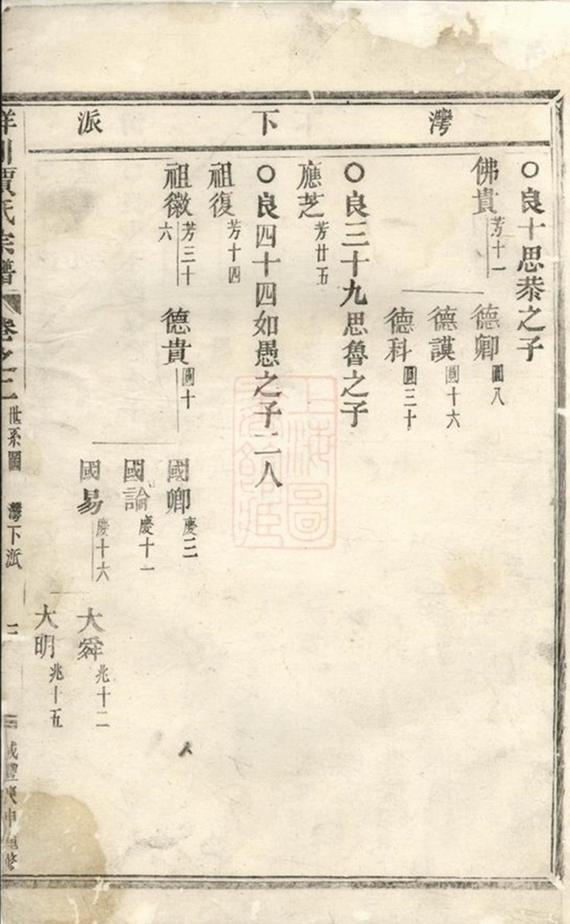 灣下派
○良十思恭之子
佛貴芳十一
德卿圓八
德謨圓十六
德科圓三十
○良三十九思魯之子
應芝芳廿五
○良四十四如愚之子二人
祖復芳十四
祖徽芳三十六
德貴圓十
國卿慶三
國論慶十一
國易慶十六
大舜兆十二
大明兆十五
賈氏宗譜
卷之三
世系圖
灣下派
咸豐庚申